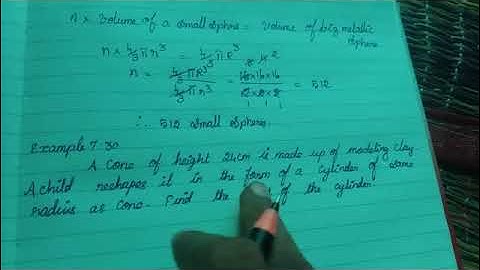 n × Volume of a small sphere = Volume of big metallic
sphere
n × 4/3 πr³ = 4/3 πR³
n = 4/3 πR³ / 4/3 πr³ = 16×16×16 / 2×2×2 = 512
∴ 512 small spheres.
Example 7.30
A cone of height 24cm is made up of modeling clay.
A child reshapes it in the form of a cylinder of same
radius as cone. Find the of the cylinder.